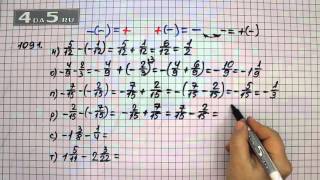 4DA5.RU
-(-) = + +(-) = - - = +(-)
1091.
н) 5/12 - (-1/12) = 5/12 + 1/12 = 6/12 = 1/2
о) -4/9 - 2/3 = -4/9 + (-2/3) = -(4/9 + 6/9) = -10/9 = -1 1/9
п) -7/15 - (-2/15) = -7/15 + 2/15 = -(7/15 - 2/15) = -5/15 = -1/3
р) -2/15 - (-7/15) = -2/15 + 7/15 = 7/15 - 2/15 =
с) -1 3/8 - 1/4 =
т) 1 5/11 - 2 3/22 =